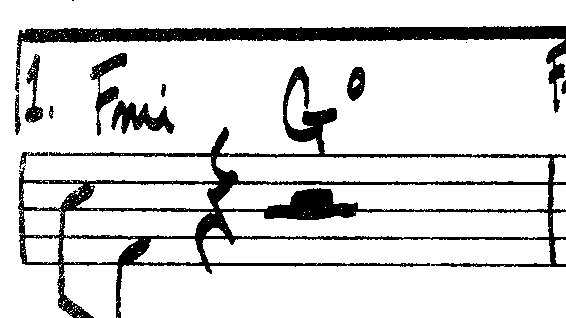 1. Fmi G°